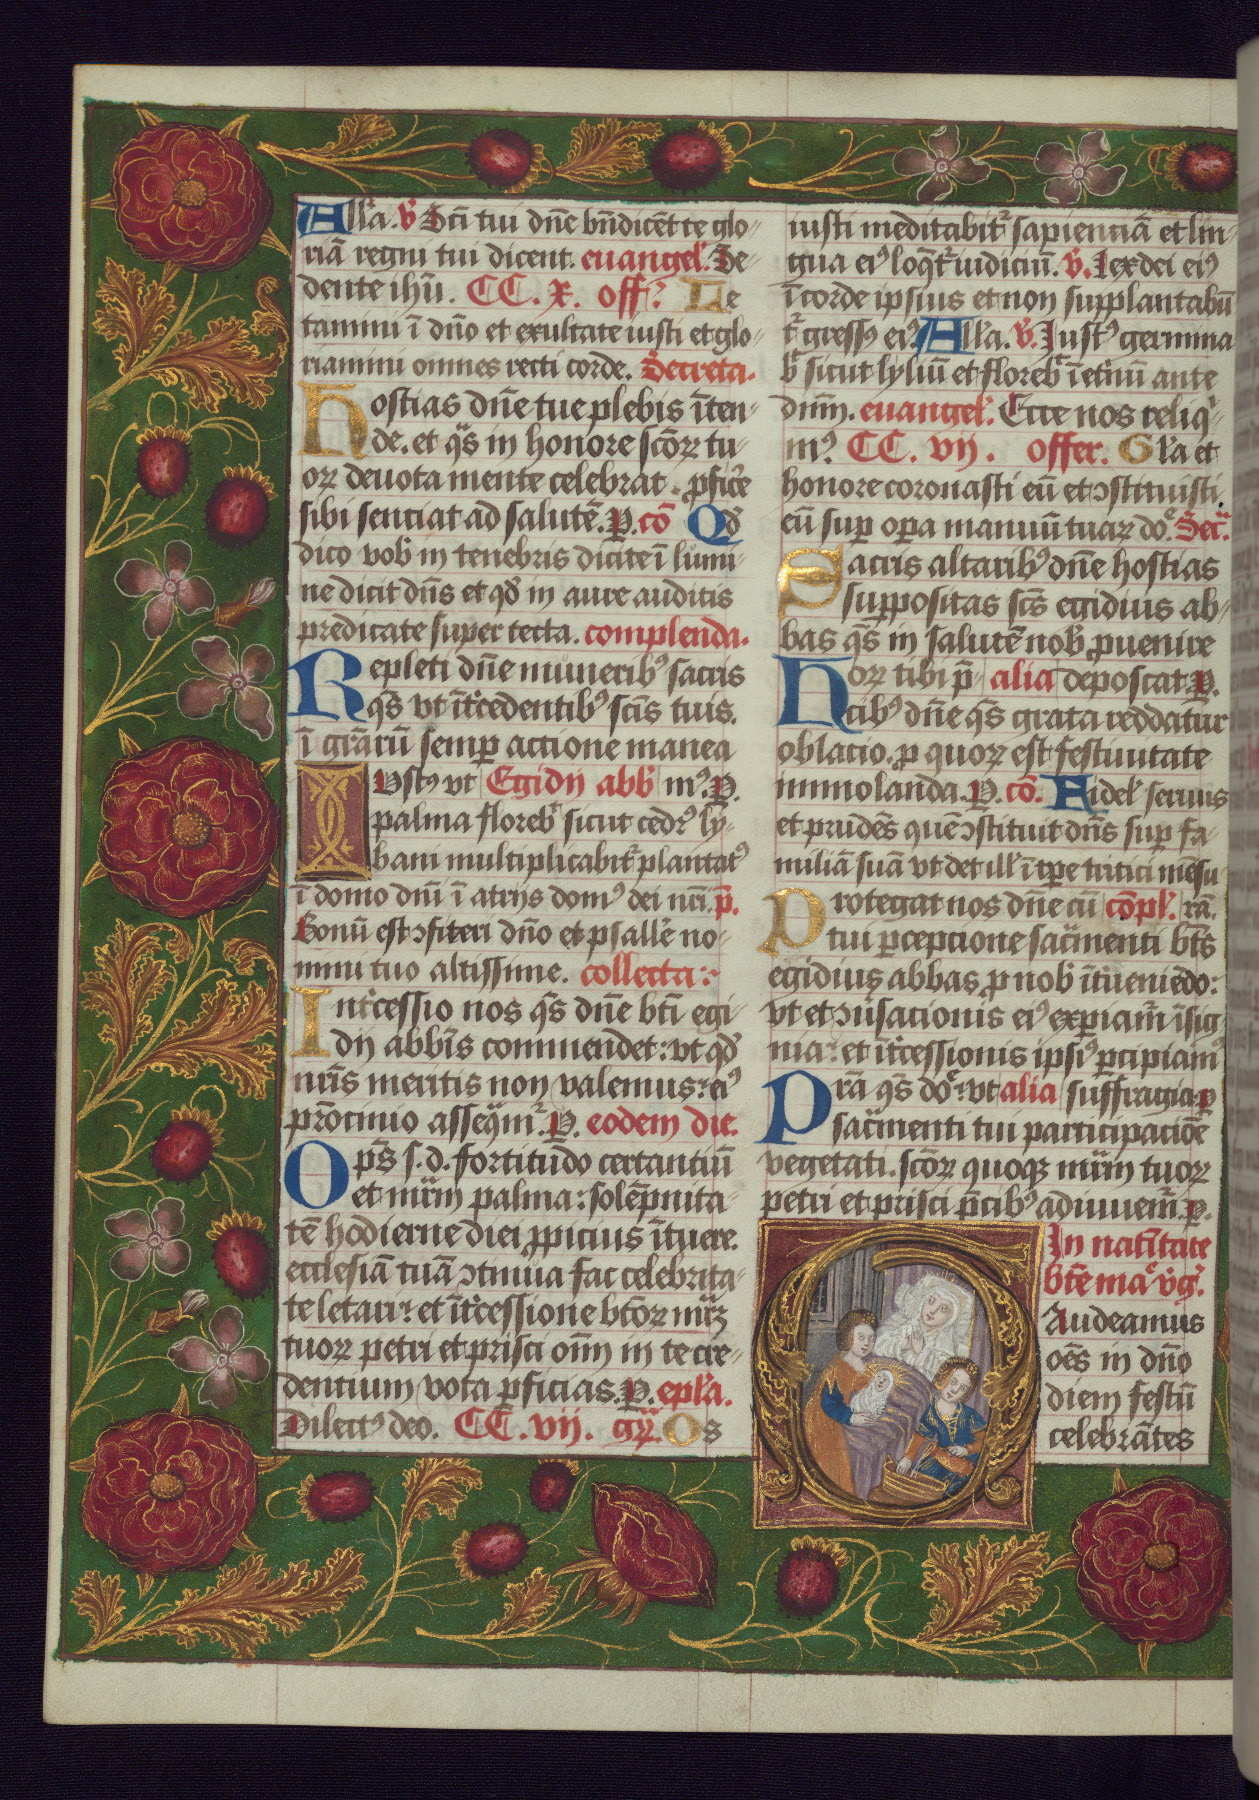 All'a. v̄ Sc̄i tui dn̄e bn̄dicēt te glo-
riā regni tui dicent. euangel'. Se-
dente ih̄u. CC. x. off'. Le
tamini ī dn̄o et exultate iusti et glo-
riamini omnes recti corde. Secreta.
Hostias dn̄e tue plebis īten-
de. et qs̄ in honore scōꝝ tu-
oꝝ deuota mente celebrat. ꝓficē
sibi senciat ad salutē. P. cō Qd̄
dico vob̄ in tenebris dicite ī lumi-
ne dicit dn̄s et qd̄ in aure auditis
predicate super tecta. complenda.
Repleti dn̄e muneribꝰ sacris
qs̄ vt īt'cedentibꝰ scīs tuis.
ī gr̄aꝝ semꝑ actione manea
Iustꝰ vt Egidij abb̄ mꝰ. P.
palma floreb' sicut cedrꝰ ly-
bani multiplicabit' plantatꝰ
ī domo dn̄i ī atrijs domꝰ dei nr̄i. p̄.
Bonū est ↄfiteri dn̄o et psall'e no-
mini tuo altissime. collecta:
Int'cessio nos qs̄ dn̄e bt̄i egi-
dij abb̄is commendet: vt qd̄
nr̄is meritis non valemus: eiꝰ
pr̄ocinio asseqm̄'. P. eodem die.
Ops̄ s. d. fortitudo certantiū
et mr̄m palma: solēpnita-
tē hodierne diei ꝓpicius ītuere.
ecclesiā tuā ↄtinua fac celebrita-
te letari: et īt'cessione btōꝝ mr̄ꝝ
tuoꝝ petri et prisci om̄ in te cre-
dentium vota ꝑficias. P. epl'a.
Dilectꝰ deo. CC. vij. gr̄. Os
iusti meditabit' sapienciā et lin-
gua eiꝰ loq̄t' iudiciū. v̄. Lex dei eiꝰ
ī corde ipsius et non supplantabū
t' gressꝰ eiꝰ. All'a. v̄. Justꝰ germina
b' sicut lyliū et floreb' ī et'nū ante
dn̄m. euangel'. Ecce nos reliq-
mꝰ CC. vij. offer. Gl'a et
honore coronasti eū et ↄstituisti
eū suꝑ oꝑa manuū tuaꝝ dōe. Sec̄.
Sacris altaribꝰ dn̄e hostias
suppositas sc̄s egidius ab-
bas qs̄ in salutē nob̄ ꝓuenire
Hoꝝ tibi p̄ alia deposcat. P.
cibꝰ dn̄e qs̄ grata reddatur
oblacio. ꝓ quoꝝ est festiuitate
immolanda. P. cō. Fidel' seruus
et prudēs quē ↄstituit dn̄s suꝑ fa-
miliā suā vt det ill' ī tꝑe tritici mēsu
Protegat nos dn̄e cū cōpl'. rā.
tui ꝑcepcione sac̄menti bt̄s
egidius abbas, ꝓ nob̄ īt'ueniēdo:
vt et ↄu'sacionis eiꝰ experiam' īsig-
nia: et īt'cessionis ipsiꝰ ꝑcipiamꝰ
Prā qs̄ dōe: vt alia suffragia. P
sac̄menti tui participacioē
vegetati. scōꝝ quoqꝫ mr̄m tuoꝝ
petri et prisci p̄cibꝰ adiuuem'. P.
In natīuitate
btē mae v̄g'.
Audeamus
oēs in dn̄o
diem festū
celebrātes